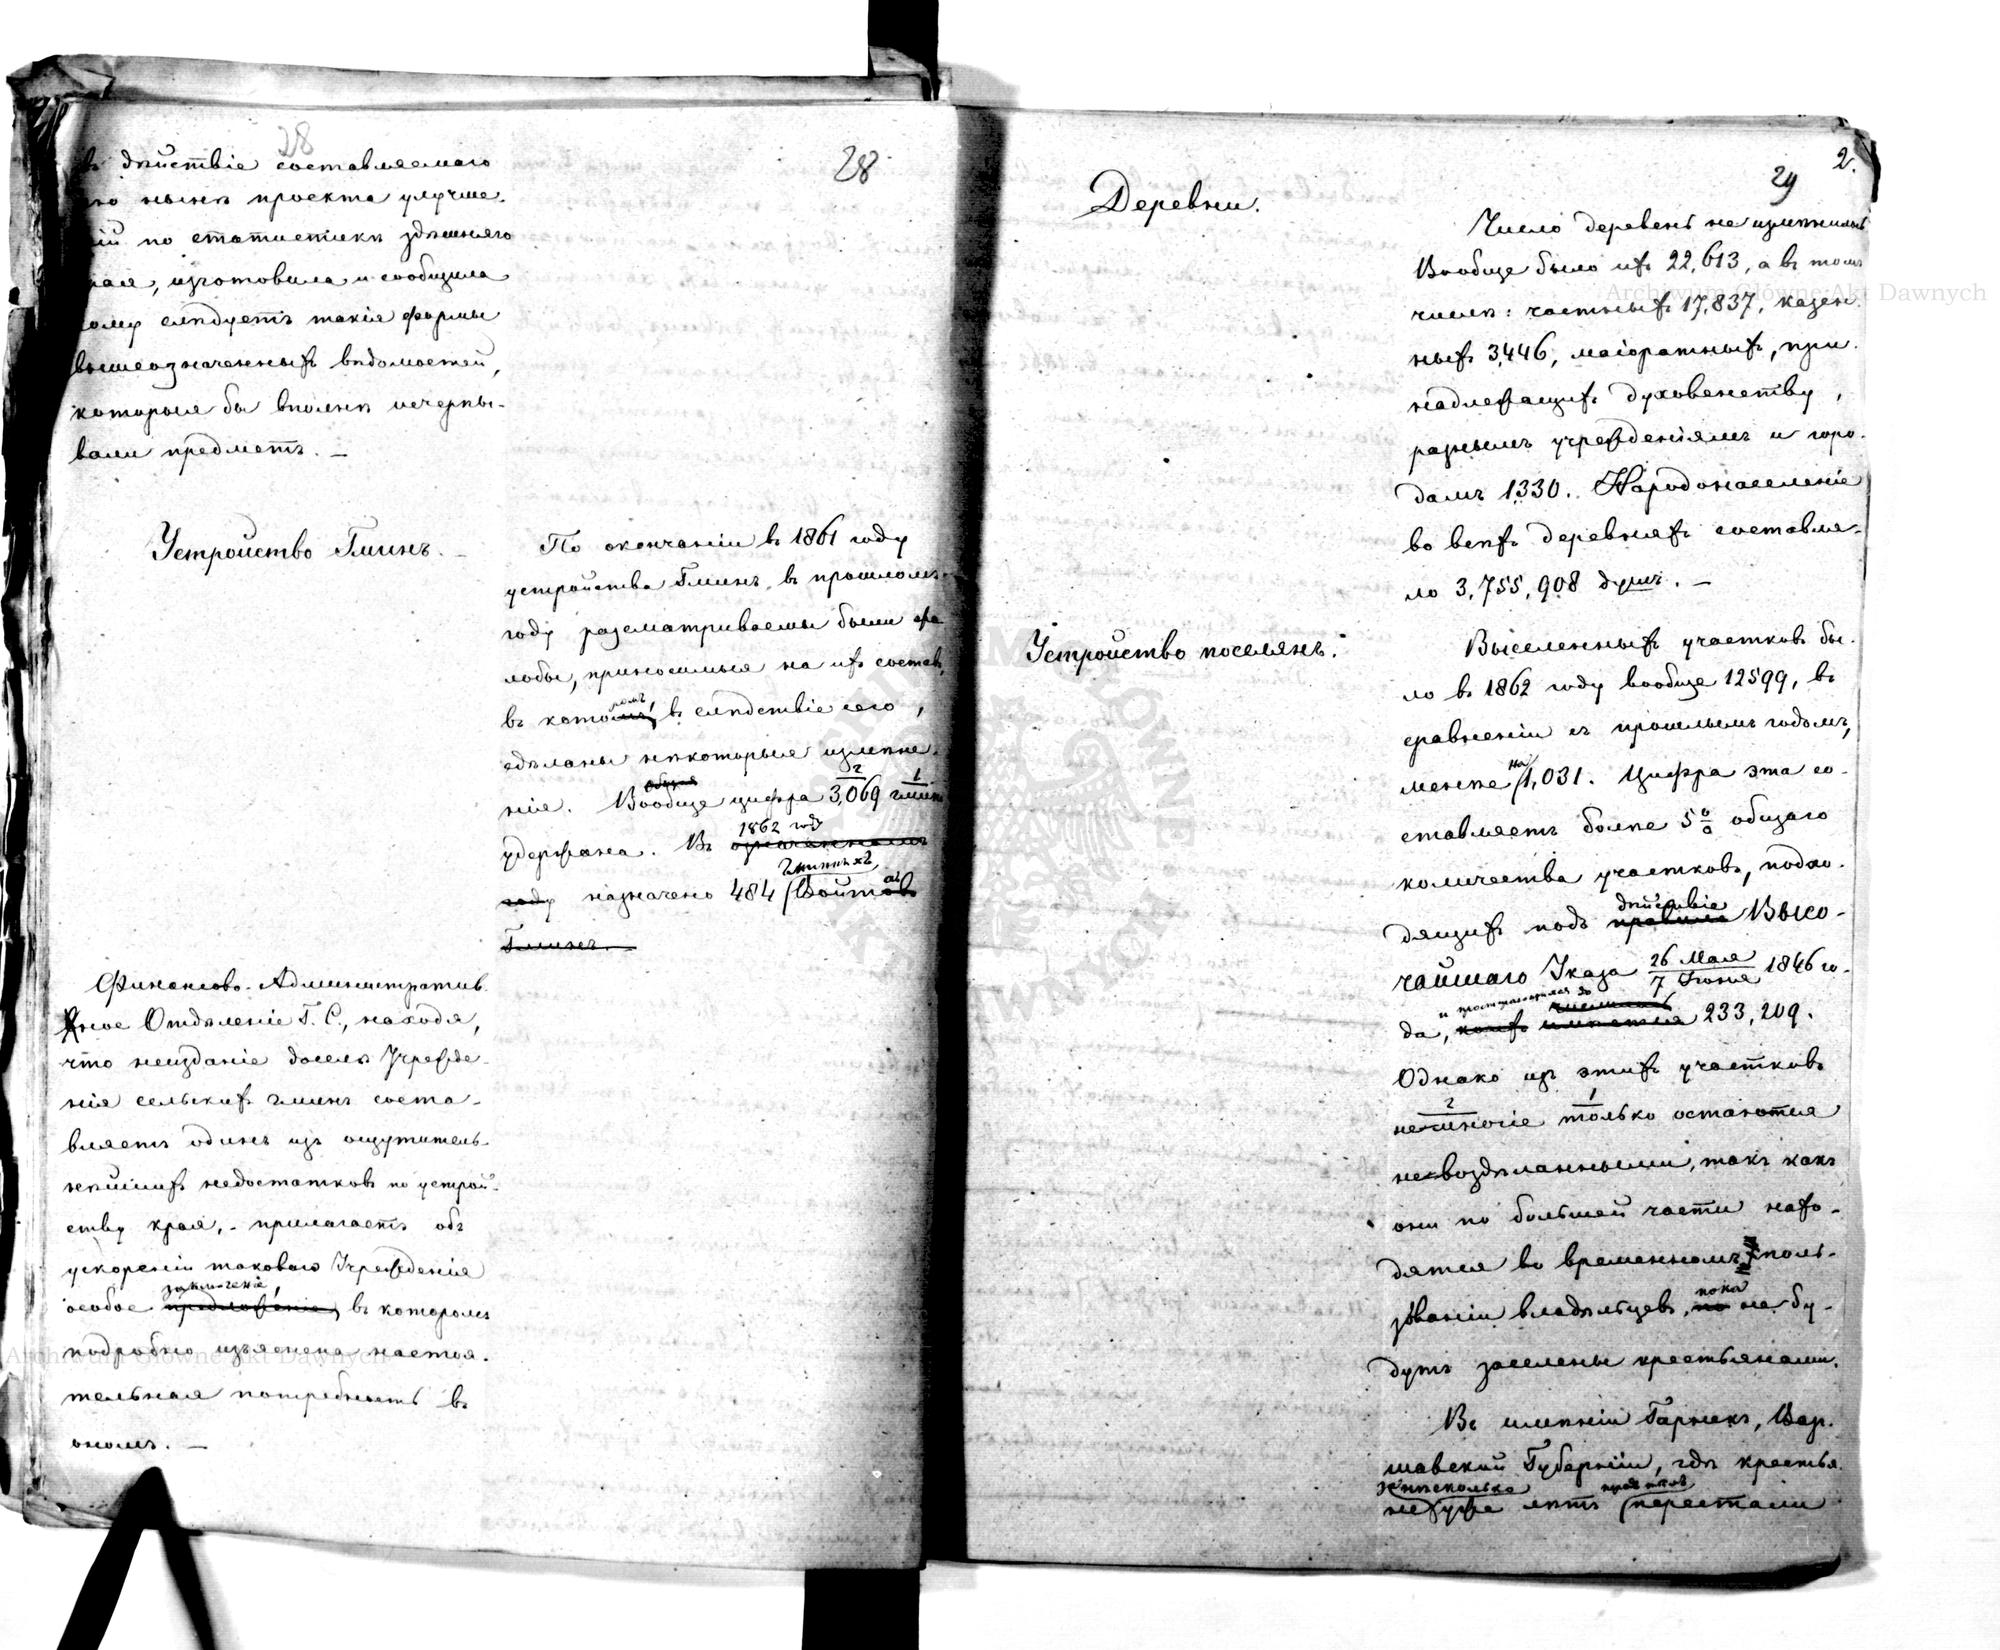 28
въ дѣйствіе составляемаго
ею нынѣ проекта улучше-
ній по статистикѣ здѣшняго
края, изготовила и сообщила
кому слѣдуетъ такія формы
вышеозначенныхъ вѣдомостей,
которыя бы вполнѣ исчерпы-
вали предметъ. —
Устройство Гминъ. —
Финансово-Административ-
ное Отдѣленіе Г. С., находя,
что неизданіе доселѣ Учрежде-
нія сельскихъ гминъ соста-
вляетъ одинъ изъ ощутитель-
нѣйшихъ недостатковъ по устрой-
ству края, - прилагаетъ объ
ускореніи таковаго Учрежденія
заключеніе,
особое предложеніе, въ которомъ
подробно изъяснена настоя-
тельная потребность въ
ономъ. —
28
По окончаніи въ 1861 году
устройства Гминъ, въ прошломъ
году разсматриваемы были жа
лобы, приносимыя на ихъ составъ,
ромъ,
въ котомъ, въ слѣдствіе сего,
сдѣланы нѣкоторыя измѣне-
общая 2 1
нія. Вообще цифра 3,069 гминъ
1862 году
удержана. Въ означенномъ
гминныхъ
году назначено 484 Войтовъ
Гминъ. —
Деревни.
Устройство поселянъ.
2.
29
Число деревень не измѣнилось
Вообще было ихъ 22,613, а въ томъ
числѣ: частныхъ 17,837, казен-
ныхъ 3,446, маіоратныхъ, при-
надлежащихъ духовенству,
разнымъ учрежденіямъ и горо-
дамъ 1330. Народонаселеніе
во всѣхъ деревняхъ составля-
ло 3,755,908 душъ. —
Выселенныхъ участковъ бы-
ло въ 1862 году вообще 12599, въ
сравненіи съ прошлымъ годомъ,
на
менѣе 1,031. Цифра эта со-
ставляетъ болѣе 5 % общаго
количества участковъ, подхо-
дѣйствіе
дящихъ подъ правила Высо-
чайшаго Указа 26 Мая / 7 Іюня 1846 го-
и простиравшихся до
числилось
да, коихъ имѣется 233,209.
Однако изъ этихъ участковъ
2 1
немногіе только остаются
невоздѣланными, такъ какъ
они по большей части нахо-
дятся во временномъ поль-
зованіи владѣльцевъ, пока не бу-
дутъ заселены крестьянами.
Въ имѣніи Гарнекъ, Вар-
шавской Губерніи, гдѣ крестья
за нѣсколько
не уже лѣтъ перестали